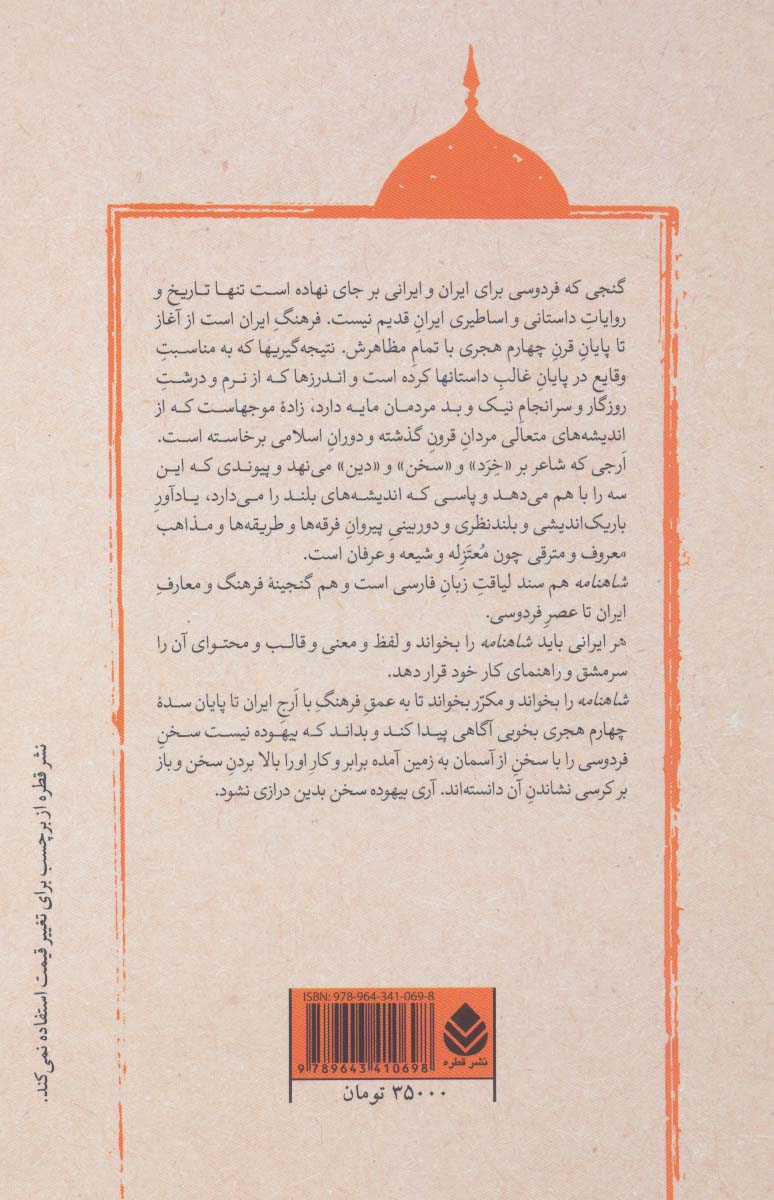 گنجی که فردوسی برای ایران و ایرانی بر جای نهاده است تنها تاریخ و
روایاتِ داستانی و اساطیری ایرانِ قدیم نیست. فرهنگِ ایران است از آغاز
تا پایانِ قرنِ چهارم هجری با تمامِ مظاهرش. نتیجه‌گیریها که به مناسبتِ
وقایع در پایانِ غالبِ داستانها کرده است و اندرزها که از نرم و درشتِ
روزگار و سرانجامِ نیک و بد مردمان مایه دارد، زادهٔ موجهاست که از
اندیشه‌های متعالی مردانِ قرونِ گذشته و دورانِ اسلامی برخاسته است.
اَرجی که شاعر بر «خِرَد» و «سخن» و «دین» می‌نهد و پیوندی که این
سه را با هم می‌دهد و پاسی که اندیشه‌های بلند را می‌دارد، یادآورِ
باریک‌اندیشی و بلندنظری و دوربینیِ پیروانِ فرقه‌ها و طریقه‌ها و مذاهب
معروف و مترقی چون مُعتَزِله و شیعه و عرفان است.
شاهنامه هم سند لیاقتِ زبانِ فارسی است و هم گنجینهٔ فرهنگ و معارفِ
ایران تا عصرِ فردوسی.
هر ایرانی باید شاهنامه را بخواند و لفظ و معنی و قالب و محتوای آن را
سرمشق و راهنمای کار خود قرار دهد.
شاهنامه را بخواند و مکرّر بخواند تا به عمقِ فرهنگِ با اَرجِ ایران تا پایان سدهٔ
چهارم هجری بخوبی آگاهی پیدا کند و بداند که بیهوده نیست سخنِ
فردوسی را با سخنِ از آسمان به زمین آمده برابر و کارِ او را بالا بردنِ سخن و باز
بر کرسی نشاندنِ آن دانسته‌اند. آری بیهوده سخن بدین درازی نشود.
نشر قطره از برچسب برای تغییر قیمت استفاده نمی‌کند.
ISBN: 978-964-341-069-8
9 789643 410698
نشر قطره
۳۵۰۰۰ تومان